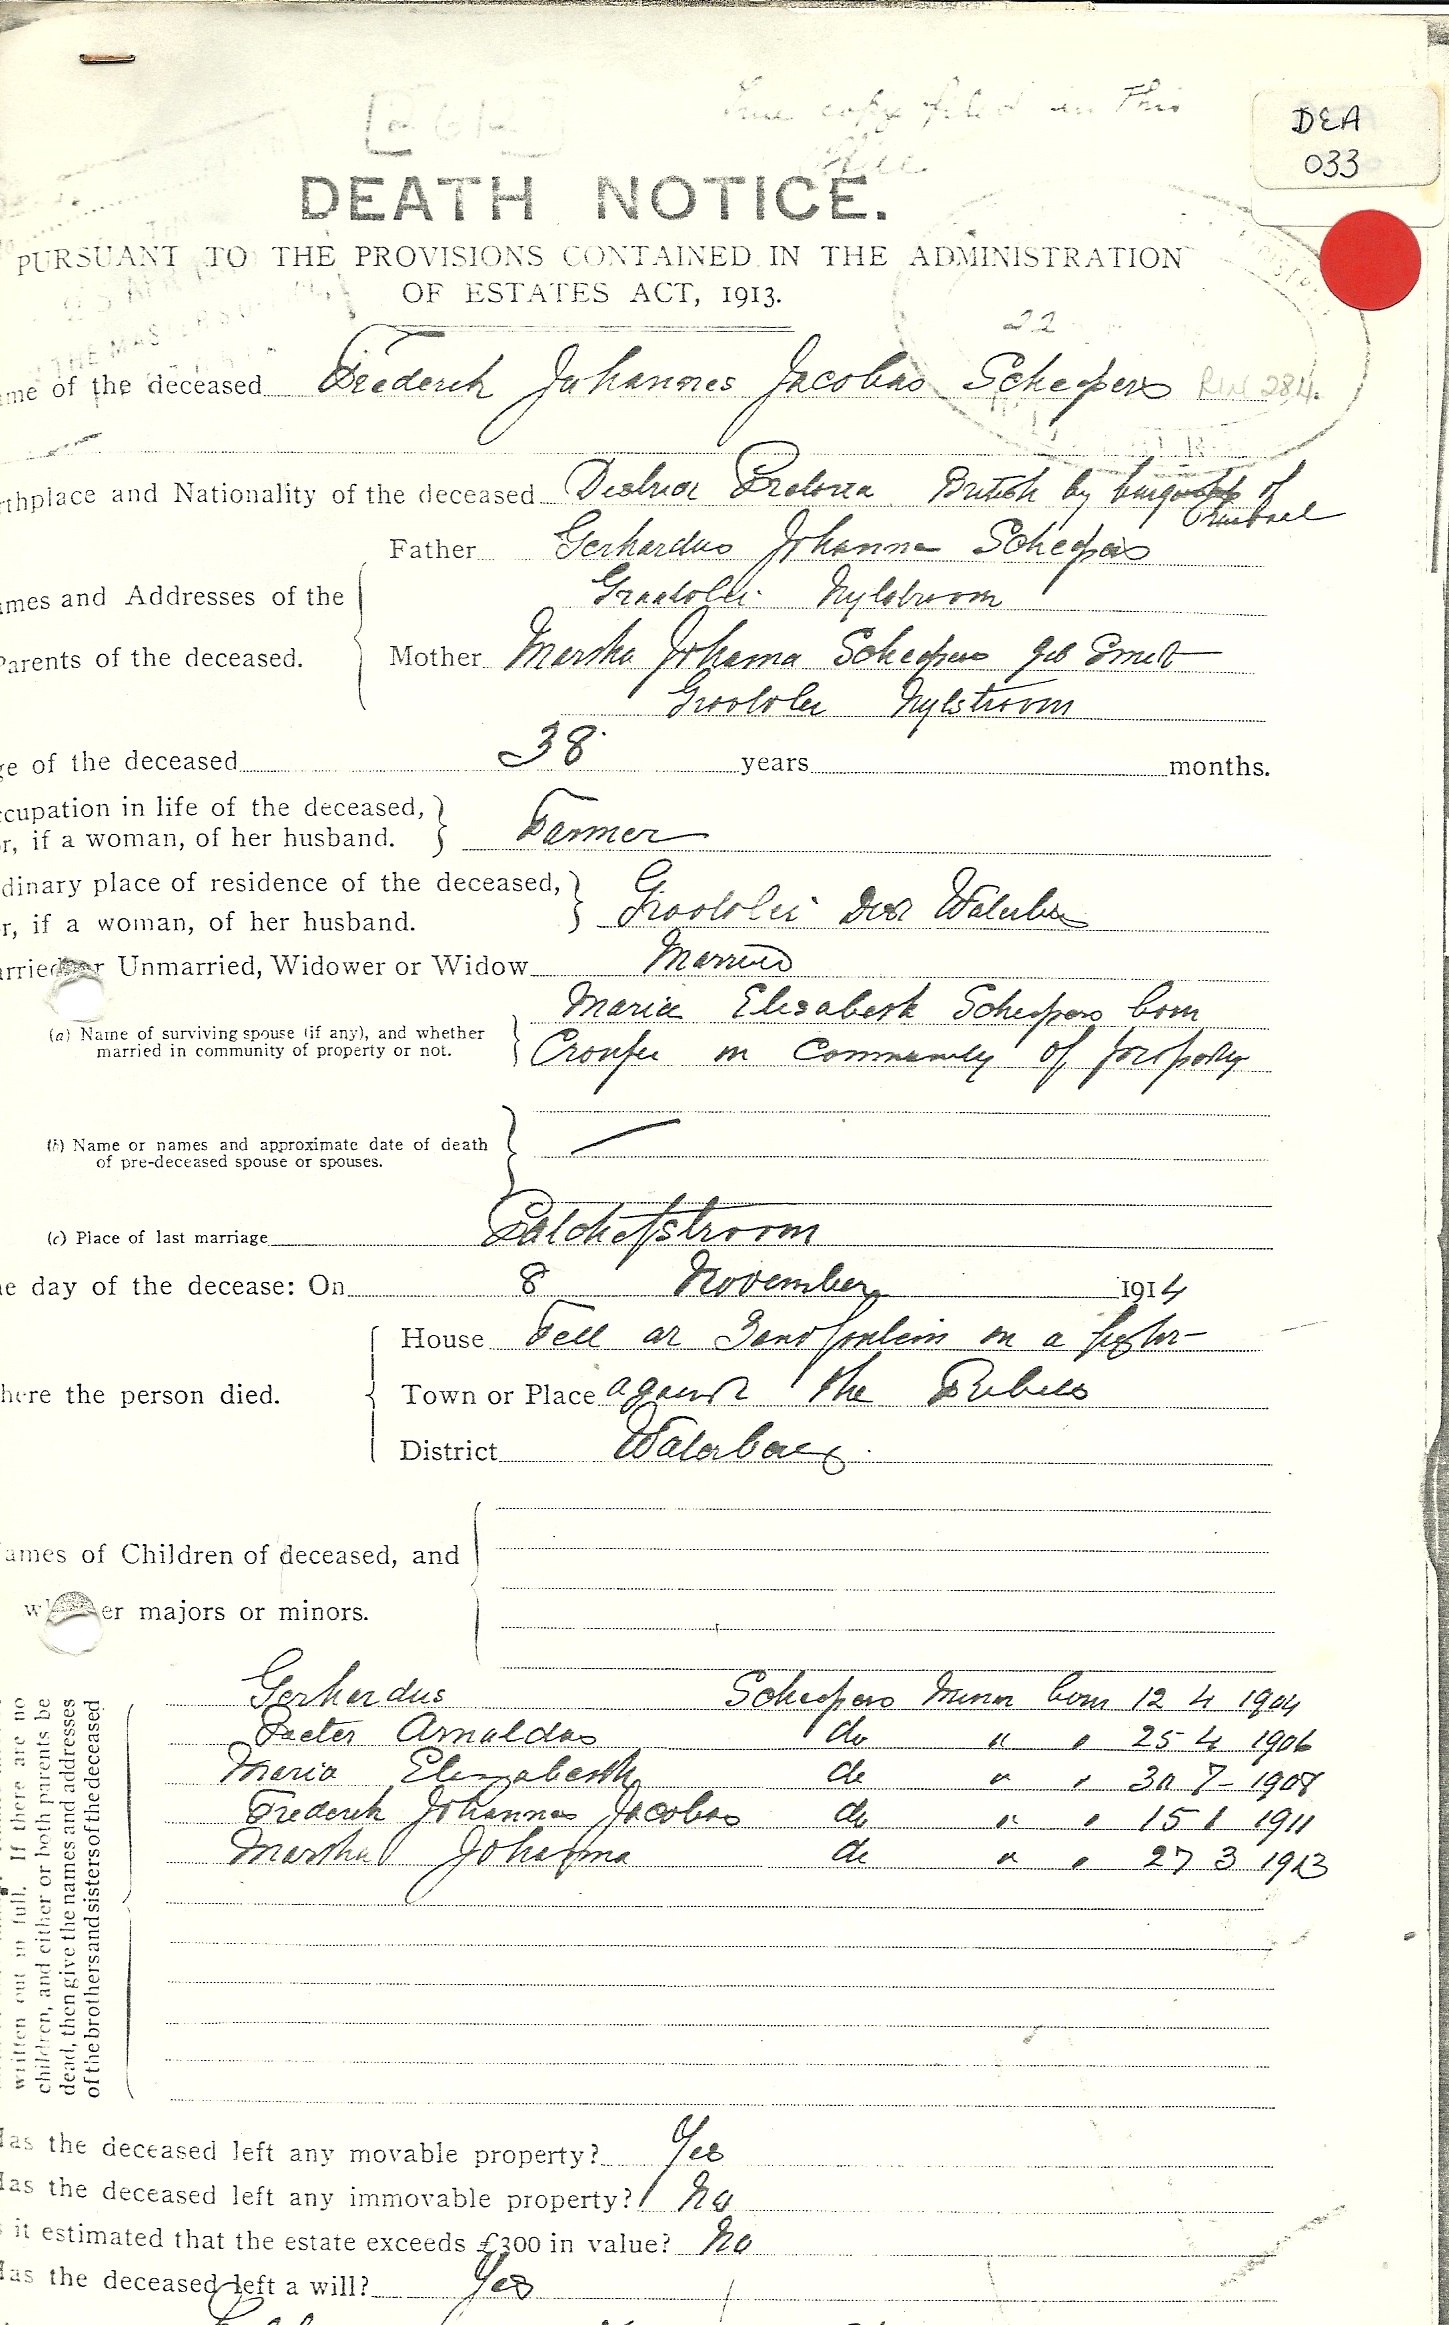 True copy filed in this
Office.
DEA
033
DEATH NOTICE.
PURSUANT TO THE PROVISIONS CONTAINED IN THE ADMINISTRATION
OF ESTATES ACT, 1913.
22
me of the deceased Frederik Johannes Jacobus Scheepers RIN 284.
rthplace and Nationality of the deceased District Pretoria British by of
Father Gerhardus Johannes Scheepers
Nylstroom
ames and Addresses of the
Parents of the deceased.
Mother Martha Johanna Scheepers geb Smit
Grootvlei Nylstroom
ge of the deceased 38 years months.
ccupation in life of the deceased,
r, if a woman, of her husband. Farmer
dinary place of residence of the deceased,
r, if a woman, of her husband. Grootvlei Dist Waterberg
arried or Unmarried, Widower or Widow Married
Maria Elisabeth Scheepers born
(a) Name of surviving spouse (if any), and whether
married in community of property or not.
Cronje in Community of property
(b) Name or names and approximate date of death
of pre-deceased spouse or spouses.
(c) Place of last marriage Potchefstroom
e day of the decease: On 8 November 1914
House Fell at Zandfontein in a fight
here the person died. Town or Place against the Rebels
District Waterberg.
ames of Children of deceased, and
whether majors or minors.
Gerhardus Scheepers Minor born 12 4 1904
Pieter Arnoldus do " " 25 4 1906
Maria Elizabeth do " " 30 7 - 1908
Frederik Johannes Jacobus do " " 15 1 1911
Martha Johanna do " " 27 3 1913
written out in full. If there are no
children, and either or both parents be
dead, then give the names and addresses
of the brothers and sisters of the deceased
Has the deceased left any movable property? Yes
Has the deceased left any immovable property? No
s it estimated that the estate exceeds £300 in value? No
Has the deceased left a will? Yes